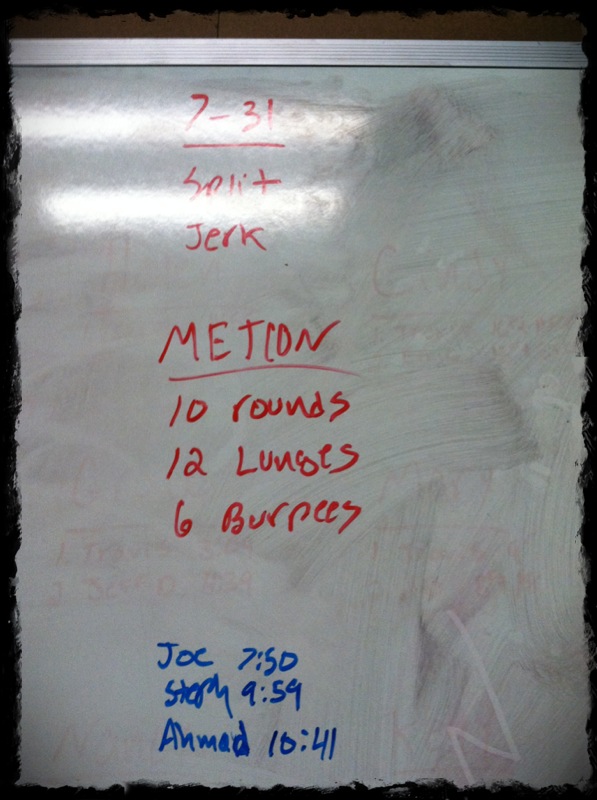 7-31
Split
Jerk
METCON
10 rounds
12 Lunges
6 Burpees
Joe 7:50
Steph 9:59
Ahmad 10:41